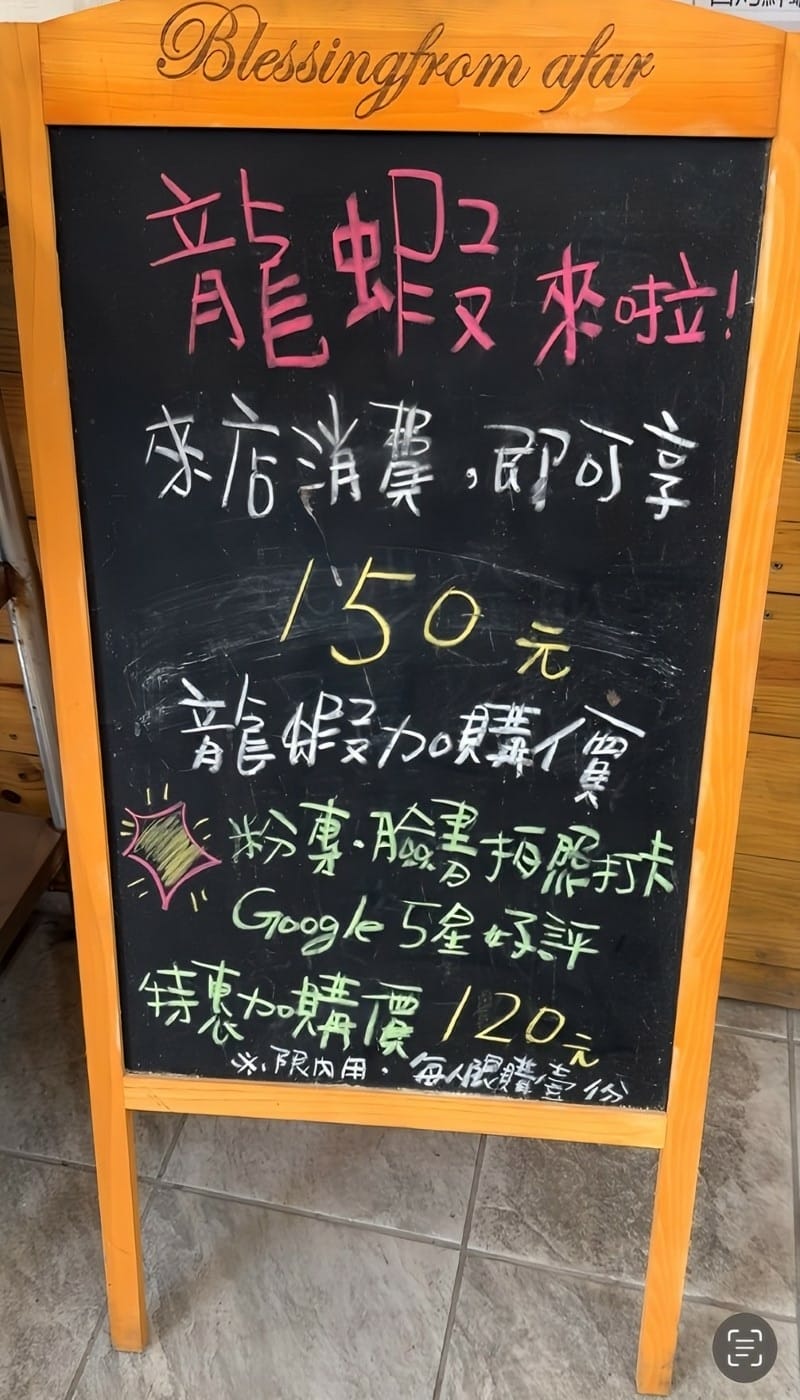 Blessingfrom afar
龍蝦來啦!
來店消費,即可享
150元
龍蝦加購價
粉專·臉書拍照打卡
Google 5星好評
特惠加購價 120元
※限內用·每人限購壹份